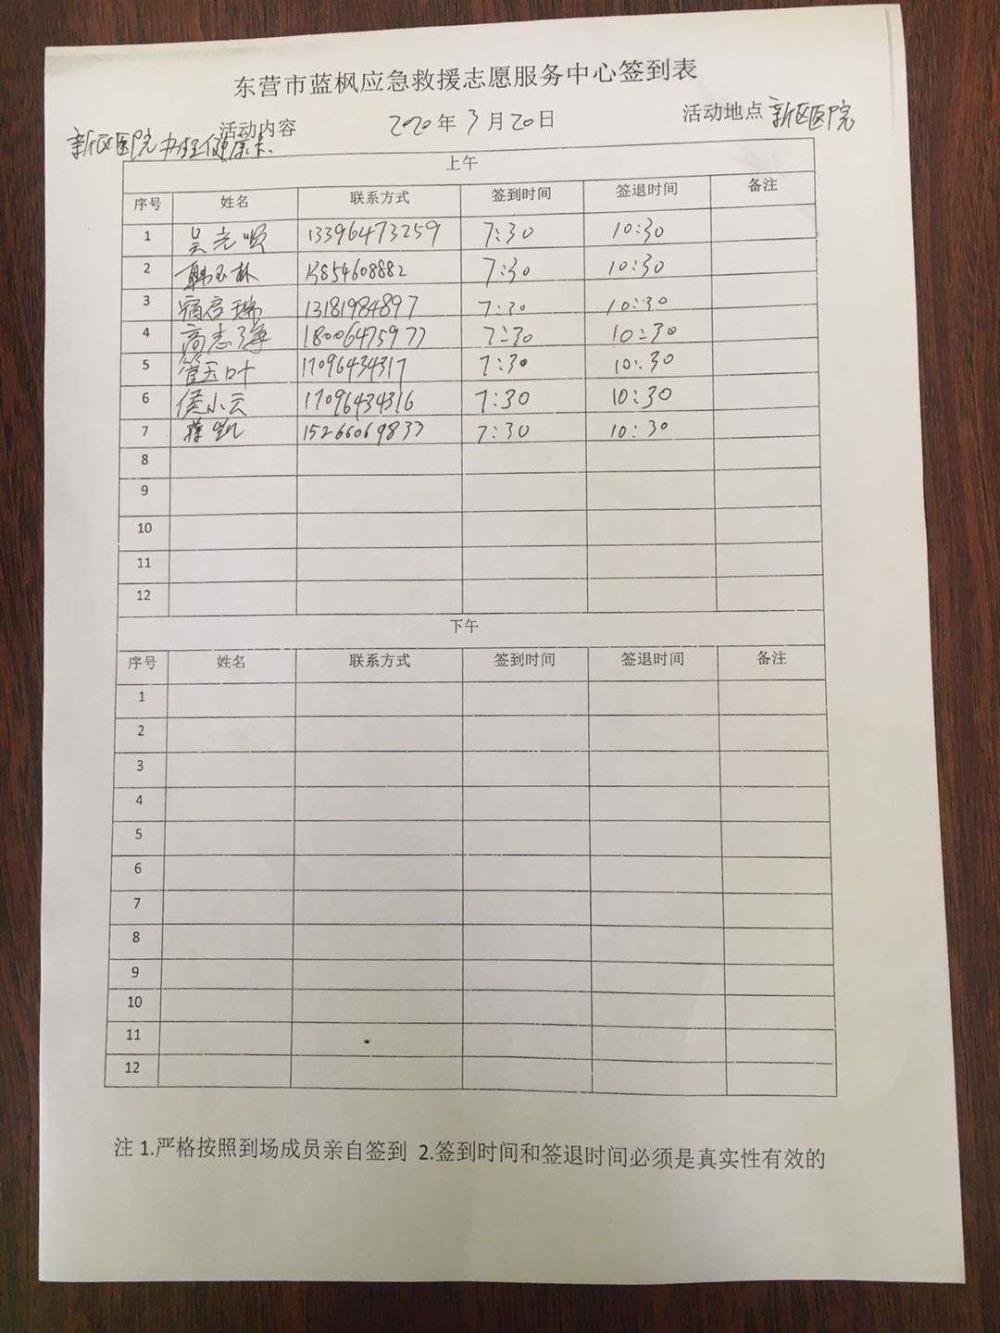 东营市蓝枫应急救援志愿服务中心签到表
活动内容 2020年3月20日 活动地点 新区医院
新区医院办理健康卡
上午
序号 姓名 联系方式 签到时间 签退时间 备注
1 吴光明 13396473259 7:30 10:30
2 韩玉林 13854608882 7:30 10:30
3 13181984897 7:30 10:30
4 高志海 18006475977 7:30 10:30
5 管玉叶 17096434317 7:30 10:30
6 侯小云 17096434316 7:30 10:30
7 蒋凯 15266069833 7:30 10:30
8
9
10
11
12
下午
序号 姓名 联系方式 签到时间 签退时间 备注
1
2
3
4
5
6
7
8
9
10
11
12
注 1.严格按照到场成员亲自签到 2.签到时间和签退时间必须是真实性有效的